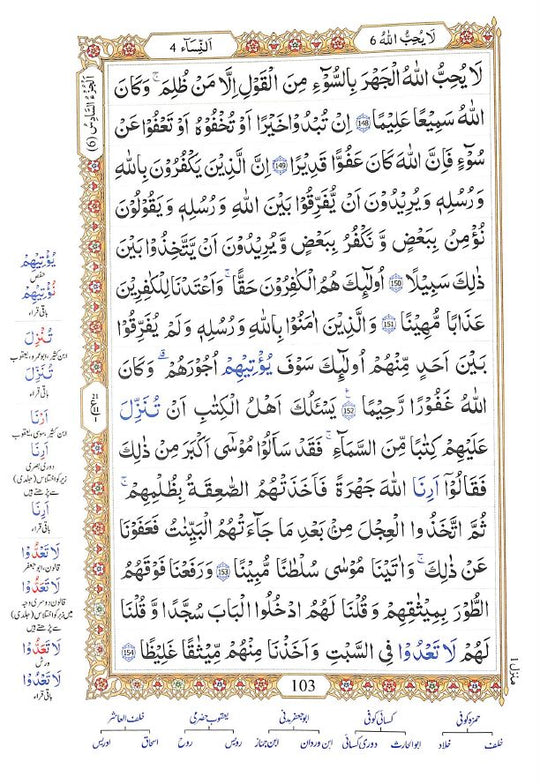 اَلنِّسَآء 4
لَا يُحِبُّ اللهُ 6
اَلْجُزْءُ السَّادِسُ (6)
لَا يُحِبُّ اللهُ الْجَهْرَ بِالسُّوْٓءِ مِنَ الْقَوْلِ اِلَّا مَنْ ظُلِمَ ۚ وَكَانَ
اللهُ سَمِيْعًا عَلِيْمًا 148 اِنْ تُبْدُوْا خَيْرًا اَوْ تُخْفُوْهُ اَوْ تَعْفُوْا عَنْ
سُوْٓءٍ فَاِنَّ اللهَ كَانَ عَفُوًّا قَدِيْرًا 149 اِنَّ الَّذِيْنَ يَكْفُرُوْنَ بِاللهِ
وَرُسُلِهٖ وَيُرِيْدُوْنَ اَنْ يُّفَرِّقُوْا بَيْنَ اللهِ وَرُسُلِهٖ وَيَقُوْلُوْنَ
نُؤْمِنُ بِبَعْضٍ وَّنَكْفُرُ بِبَعْضٍ وَّيُرِيْدُوْنَ اَنْ يَّتَّخِذُوْا بَيْنَ
ذٰلِكَ سَبِيْلًا 150 اُولٰٓئِكَ هُمُ الْكٰفِرُوْنَ حَقًّا ۚ وَاَعْتَدْنَا لِلْكٰفِرِيْنَ
عَذَابًا مُّهِيْنًا 151 وَالَّذِيْنَ اٰمَنُوْا بِاللهِ وَرُسُلِهٖ وَلَمْ يُفَرِّقُوْا
بَيْنَ اَحَدٍ مِّنْهُمْ اُولٰٓئِكَ سَوْفَ يُؤْتِيْهِمْ اُجُوْرَهُمْ ۗ وَكَانَ
اللهُ غَفُوْرًا رَّحِيْمًا 152 يَسْئَلُكَ اَهْلُ الْكِتٰبِ اَنْ تُنَزِّلَ
عَلَيْهِمْ كِتٰبًا مِّنَ السَّمَآءِ فَقَدْ سَاَلُوْا مُوْسٰٓى اَكْبَرَ مِنْ ذٰلِكَ
فَقَالُوْٓا اَرِنَا اللهَ جَهْرَةً فَاَخَذَتْهُمُ الصّٰعِقَةُ بِظُلْمِهِمْ ۚ
ثُمَّ اتَّخَذُوا الْعِجْلَ مِنْۢ بَعْدِ مَا جَآءَتْهُمُ الْبَيِّنٰتُ فَعَفَوْنَا
عَنْ ذٰلِكَ ۚ وَاٰتَيْنَا مُوْسٰى سُلْطٰنًا مُّبِيْنًا 153 وَرَفَعْنَا فَوْقَهُمُ
الطُّوْرَ بِمِيْثٰقِهِمْ وَقُلْنَا لَهُمُ ادْخُلُوا الْبَابَ سُجَّدًا وَّقُلْنَا
لَهُمْ لَا تَعْدُوْا فِى السَّبْتِ وَاَخَذْنَا مِنْهُمْ مِّيْثٰقًا غَلِيْظًا 154
يُؤْتِيْهِمْ
حفص
نُؤْتِيْهِمْ
باقی قراء
تُنْزِلَ
ابن کثیر، ابوعمرو، یعقوب
تُنَزِّلَ
باقی قراء
اَرْنَا
ابن کثیر، سوسی، یعقوب
اَرِنَا
دوری بصری
زیر کو اختلاس (جلدی)
سے پڑھتے ہیں
اَرِنَا
باقی قراء
لَا تَعْدُّوْا
قالون، ابوجعفر
لَا تَعَدُّوْا
قالون دوسری وجہ
میں زبر کو اختلاس (جلدی)
سے پڑھتے ہیں
لَا تَعَدُّوْا
ورش
لَا تَعْدُوْا
باقی قراء
منزل ۱
103
حمزہ کوفی
کسائی کوفی
ابوجعفر مدنی
یعقوب حضرمی
خلف العاشر
خلف
خلاد
ابوالحارث
دوری کسائی
ابن وردان
ابن جماز
رویس
روح
اسحاق
ادریس